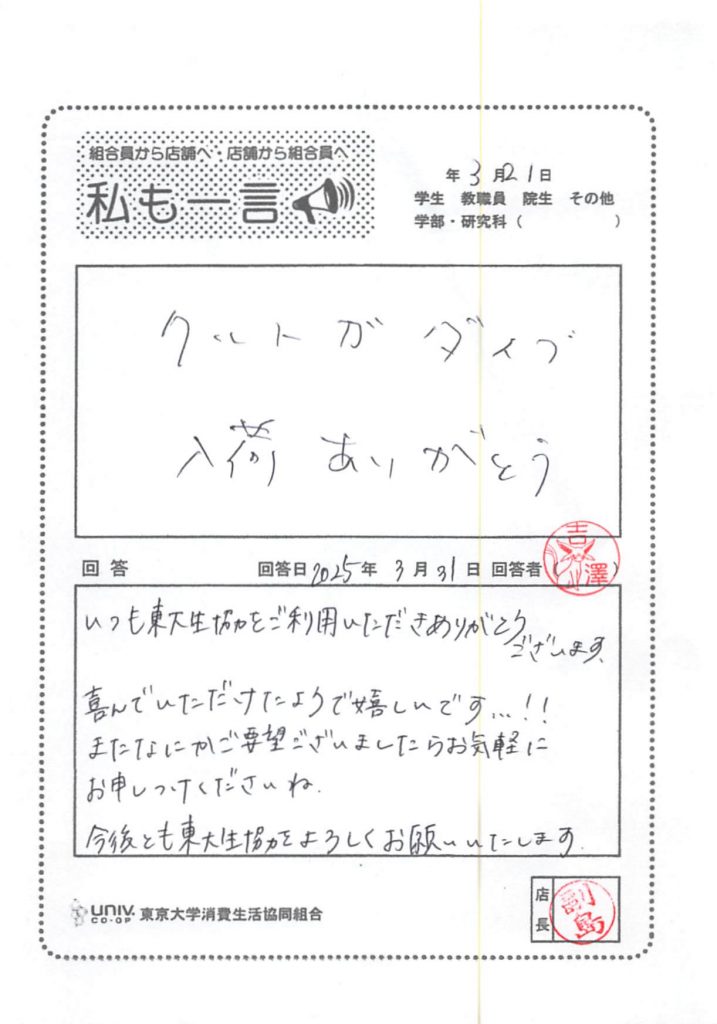 組合員から店舗へ・店舗から組合員へ
私も一言
年 3 月 21 日
学生 教職員 院生 その他
学部・研究科 ( )
クルトガ ダイブ
入荷 ありがとう
回答 回答日 2025 年 3 月 31 日 回答者 ( 吉澤 )
いつも東大生協をご利用いただきありがとう
ございます。
喜んでいただけたようで嬉しいです...!!
またなにかご要望ございましたらお気軽に
お申しつけくださいね.
今後とも東大生協をよろしくお願いいたします.
UNIV. CO-OP 東京大学消費生活協同組合
店長 副島